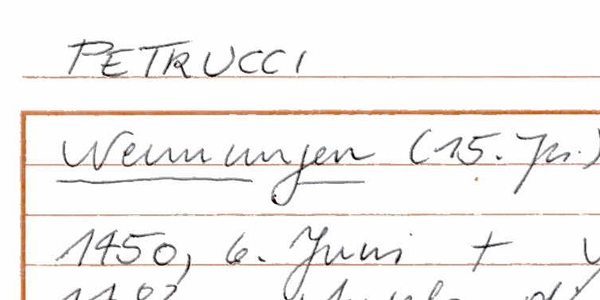 PETRUCCI
Nennungen (15. Jh.)
1450, 6. Juni †